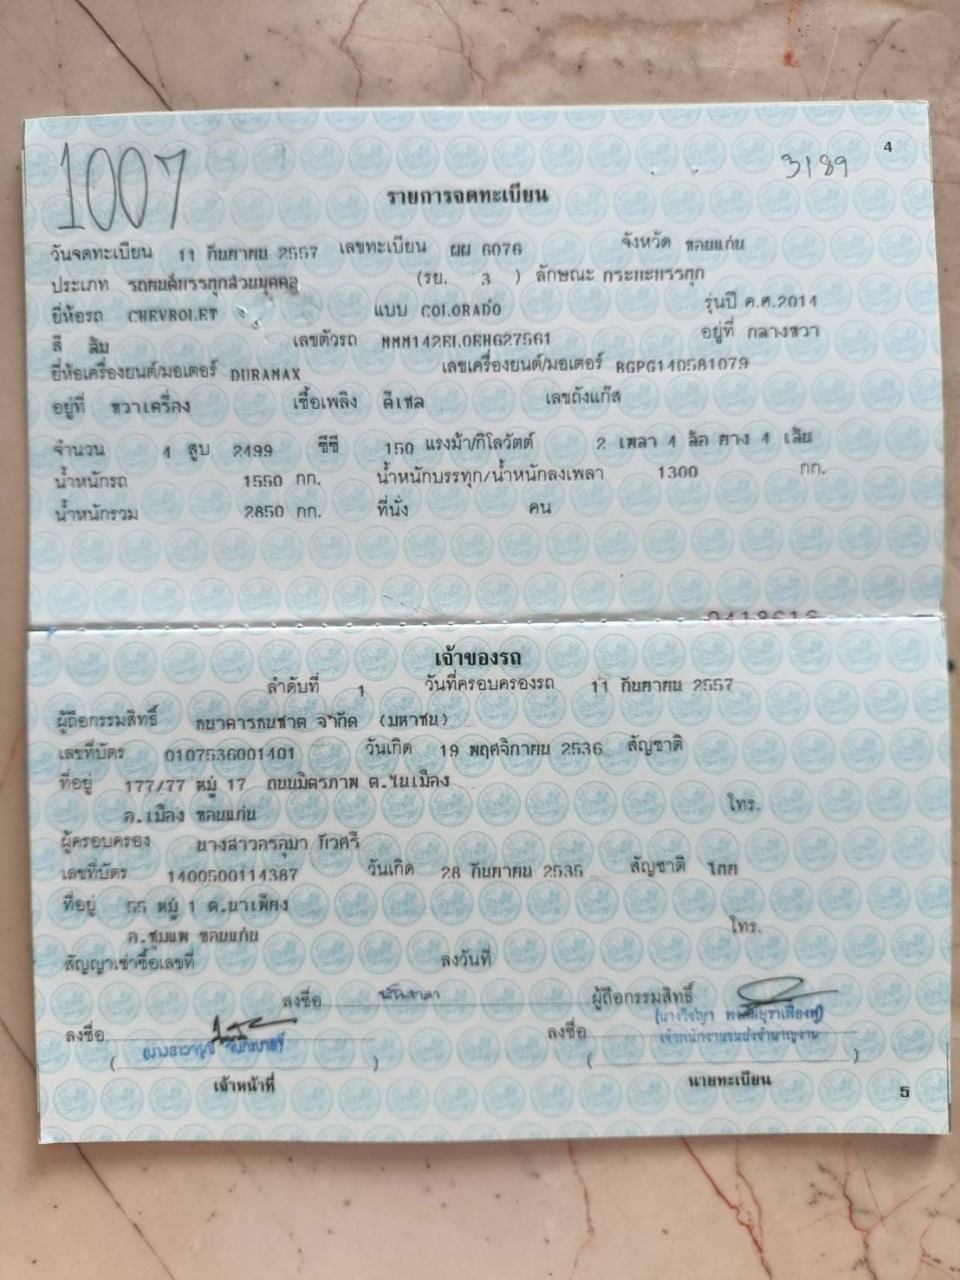 4
1007
3189
รายการจดทะเบียน
วันจดทะเบียน 11 กันยายน 2557 เลขทะเบียน ผผ 6076 จังหวัด ขอนแก่น
ประเภท รถยนต์บรรทุกส่วนบุคคล (รย. 3 ) ลักษณะ กระบะบรรทุก
ยี่ห้อรถ CHEVROLET แบบ COLORADO รุ่นปี ค.ศ.2014
สี ส้ม เลขตัวรถ MMM142ELOEH627561 อยู่ที่ กลางขวา
ยี่ห้อเครื่องยนต์/มอเตอร์ DURAMAX เลขเครื่องยนต์/มอเตอร์ BGPG140581079
อยู่ที่ ขวาเครื่อง เชื้อเพลิง ดีเซล เลขถังแก๊ส
จำนวน 4 สูบ 2499 ซีซี 150 แรงม้า/กิโลวัตต์ 2 เพลา 4 ล้อ ยาง 4 เส้น
น้ำหนักรถ 1550 กก. น้ำหนักบรรทุก/น้ำหนักลงเพลา 1300 กก.
น้ำหนักรวม 2850 กก. ที่นั่ง คน
เจ้าของรถ
ลำดับที่ 1 วันที่ครอบครองรถ 11 กันยายน 2557
ผู้ถือกรรมสิทธิ์ ธนาคารธนชาต จำกัด (มหาชน)
เลขที่บัตร 0107536001401 วันเกิด 19 พฤศจิกายน 2536 สัญชาติ
ที่อยู่ 177/77 หมู่ 17 ถนนมิตรภาพ ต.ในเมือง
โทร.
อ.เมือง ขอนแก่น
ผู้ครอบครอง นางสาวอรอุมา
เลขที่บัตร 1400500114387 วันเกิด 28 กันยายน 2535 สัญชาติ ไทย
ที่อยู่ 55 หมู่ 1 ต.นาเพียง
โทร.
อ.ชุมแพ ขอนแก่น
สัญญาเช่าซื้อเลขที่ ลงวันที่
ลงชื่อ ผู้ถือกรรมสิทธิ์
ลงชื่อ ลงชื่อ
เจ้าพนักงานขนส่งชำนาญงาน
( ) ( )
เจ้าหน้าที่ นายทะเบียน
5